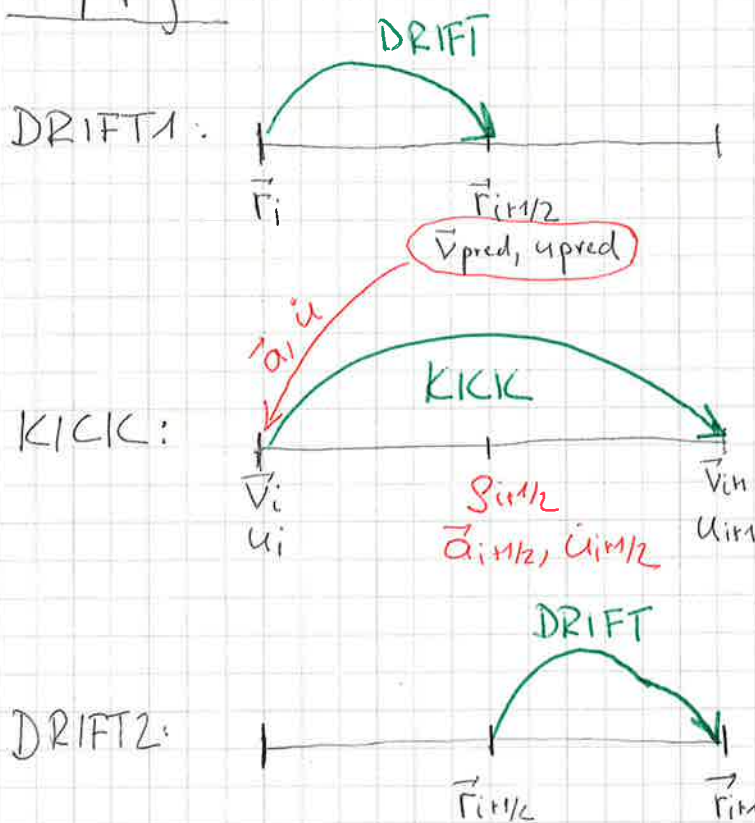 DRIFT
DRIFT1:
r⃗i r⃗i+1/2
v⃗pred, upred
a⃗, u̇
KICK
KICK:
v⃗i ρi+1/2 v⃗i+1
ui a⃗i+1/2, u̇i+1/2 ui+1
DRIFT
DRIFT2:
r⃗i+1/2 r⃗i+1